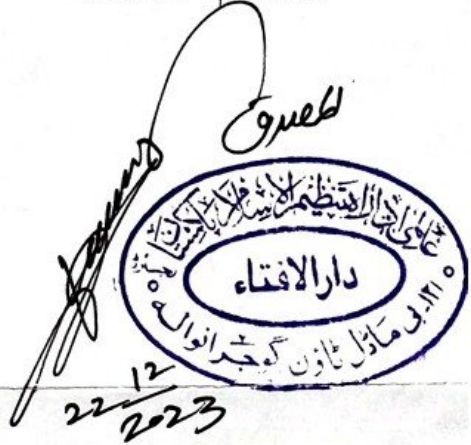 عالمی ادارہ تنظیم الاسلام پاکستان
دارالافتاء
۱۲۱۔بی ماڈل ٹاؤن گوجرانوالہ
22 12
2023